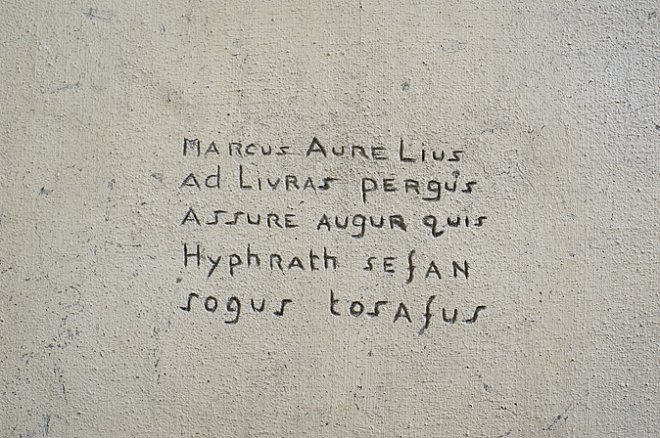 MARCUS AURELIUS
Ad LIVRAS pERgus
ASSURE AUgUR quis
HyphRATh SEfAN
sogus tosAfus